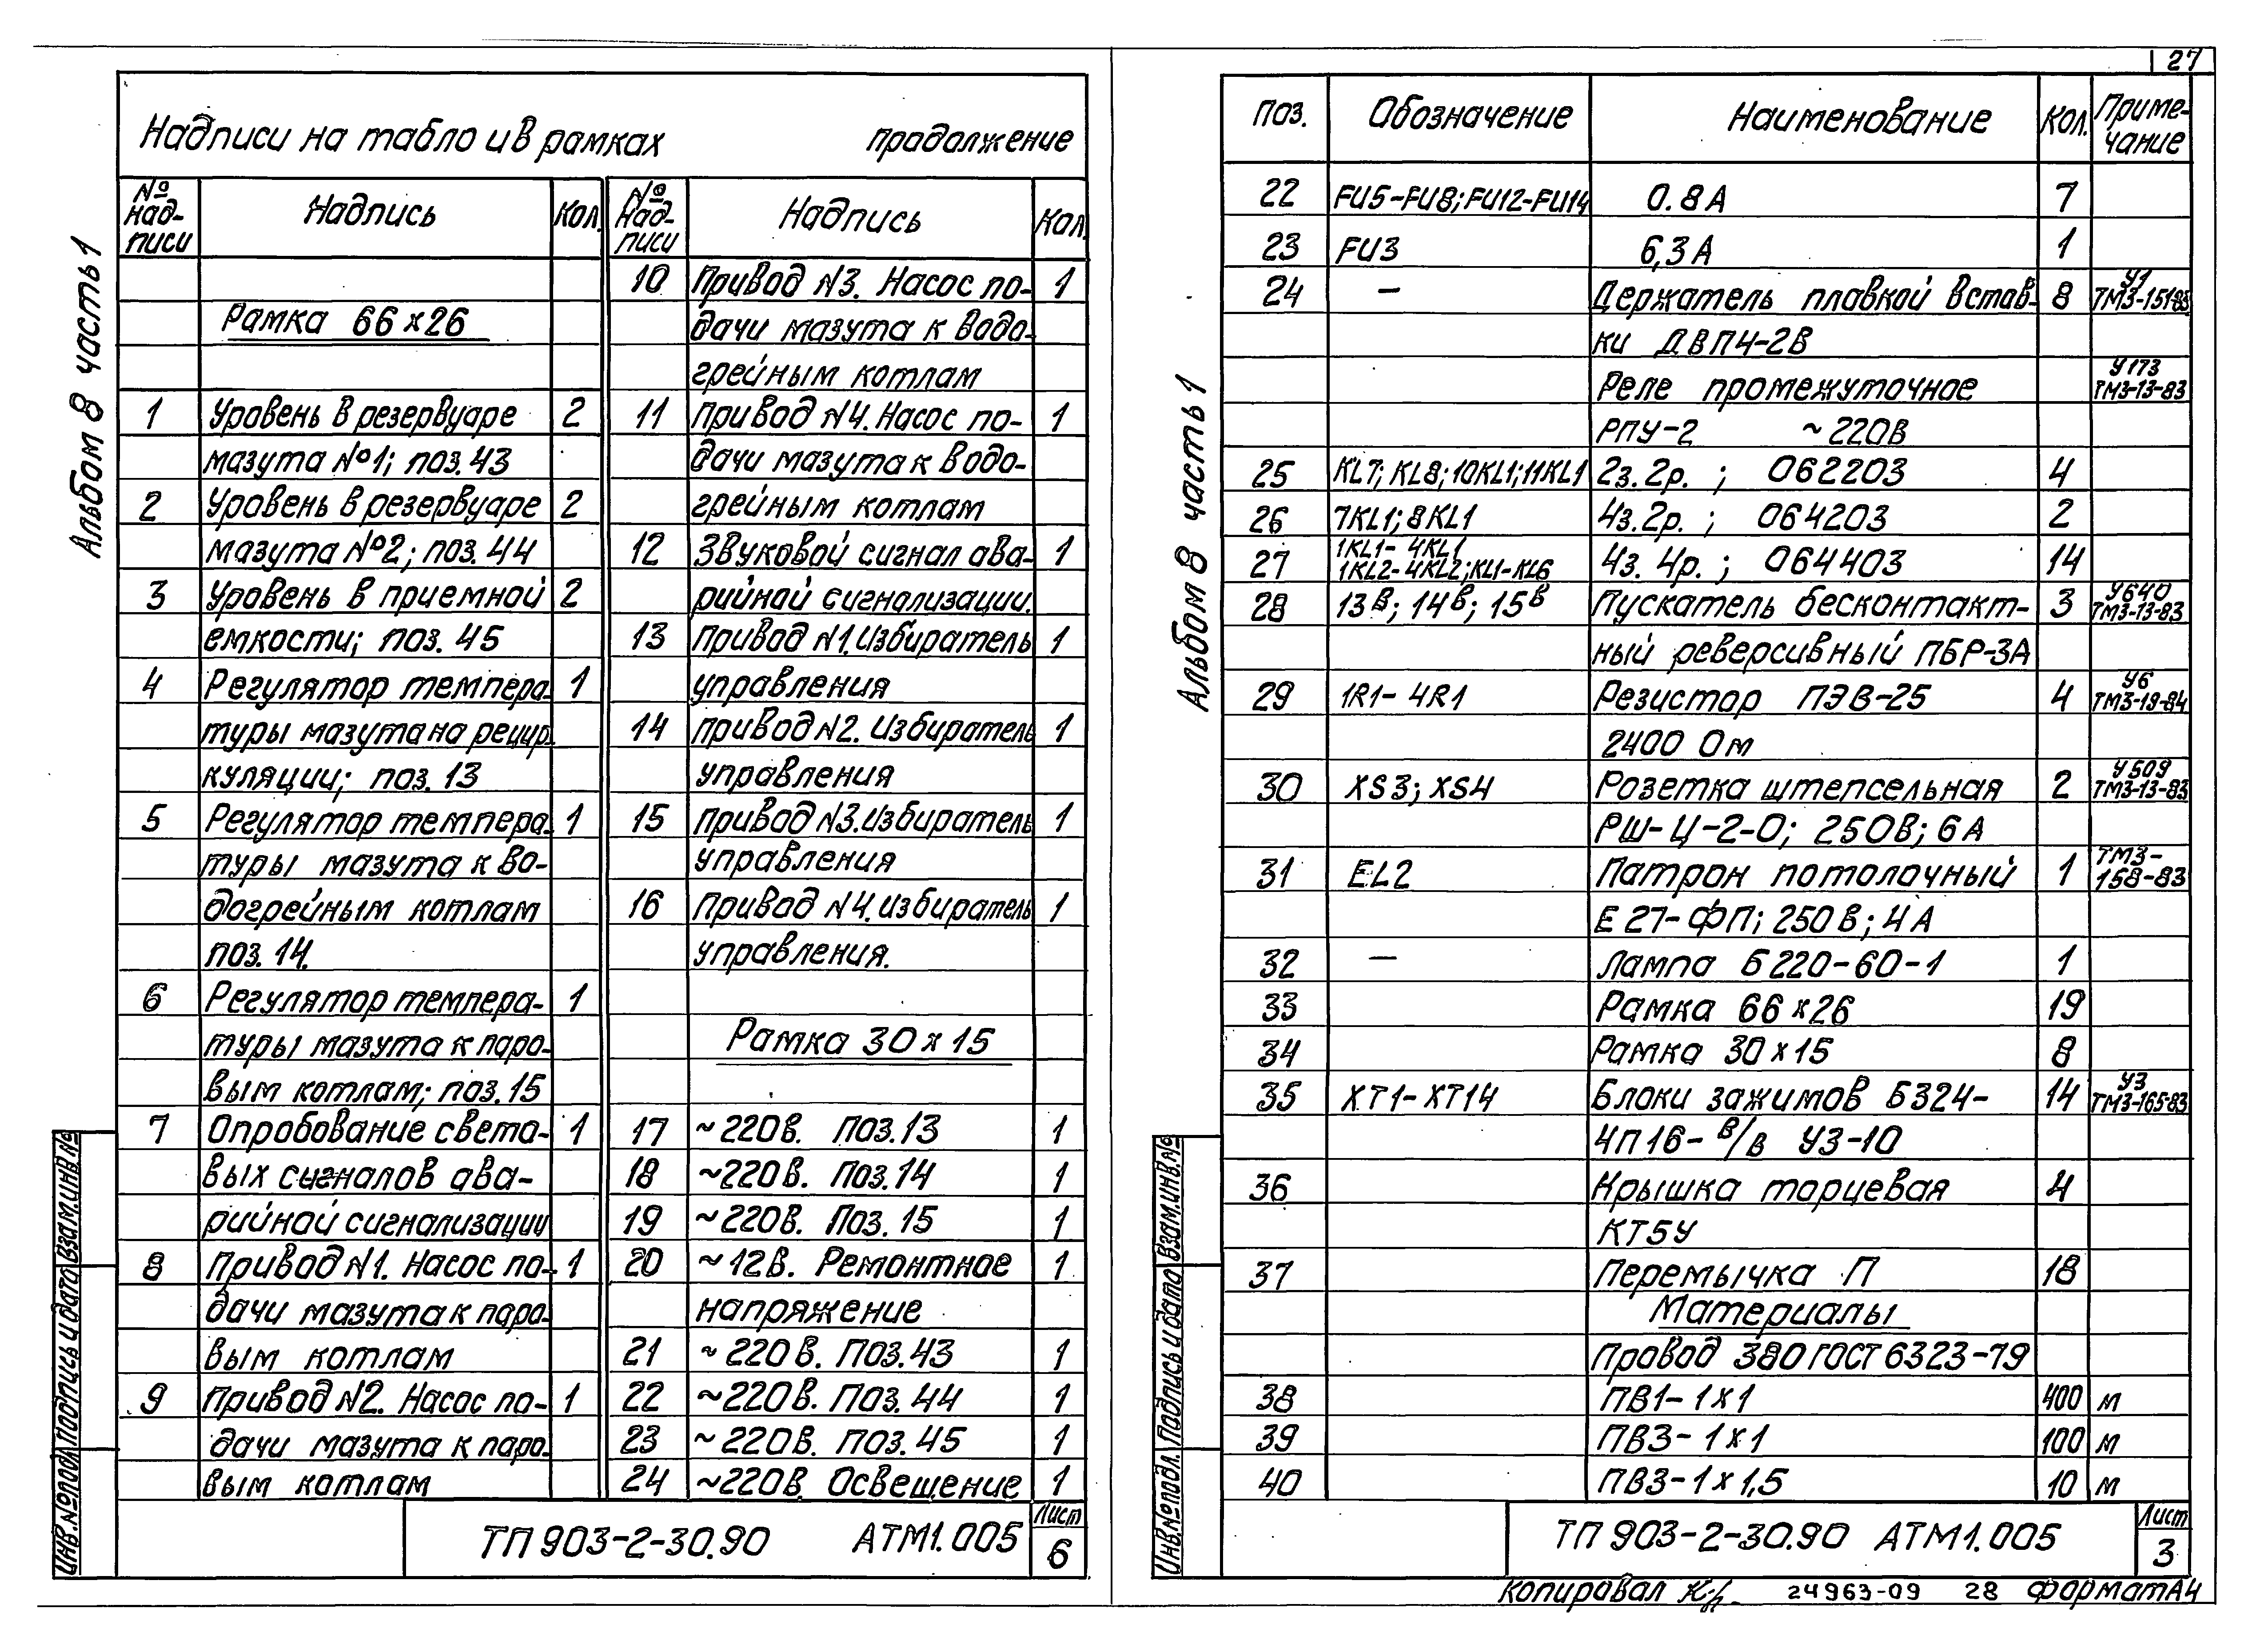 27
Альбом 8 часть 1
Надписи на табло и в рамках продолжение
№ над-писи Надпись Кол. № над-писи Надпись Кол.
Рамка 66х26
1 Уровень в резервуаре 2
мазута №1; поз. 43
2 Уровень в резервуаре 2
мазута №2; поз. 44
3 Уровень в приемной 2
емкости; поз. 45
4 Регулятор темпера- 1
туры мазута на рецир-
куляции; поз. 13
5 Регулятор темпера- 1
туры мазута к во-
догрейным котлам
поз. 14.
6 Регулятор темпера- 1
туры мазута к паро-
вым котлам; поз. 15
7 Опробование свето- 1
вых сигналов ава-
рийной сигнализации
8 Привод N1. Насос по- 1
дачи мазута к паро-
вым котлам
9 Привод N2. Насос по- 1
дачи мазута к паро-
вым котлам
10 Привод N3. Насос по- 1
дачи мазута к водо-
грейным котлам
11 Привод N4. Насос по- 1
дачи мазута к водо-
грейным котлам
12 Звуковой сигнал ава- 1
рийной сигнализации.
13 Привод N1. Избиратель 1
управления
14 Привод N2. Избиратель 1
управления
15 Привод N3. Избиратель 1
управления
16 Привод N4. Избиратель 1
управления.
Рамка 30х15
17 ~220В. Поз. 13 1
18 ~220В. Поз. 14 1
19 ~220В. Поз. 15 1
20 ~12В. Ремонтное 1
напряжение
21 ~220В. Поз. 43 1
22 ~220В. Поз. 44 1
23 ~220В. Поз. 45 1
24 ~220В. Освещение 1
Инв.№подл. Подпись и дата Взам.инв.№
ТП 903-2-30.90 АТМ1.005
Лист
6
Альбом 8 часть 1
Поз. Обозначение Наименование Кол. Приме-чание
22 FU5-FU8; FU12-FU14 0.8А 7
23 FU3 6,3А 1
24 — Держатель плавкой встав- 8 У1 ТМ3-151-83
ки ДВП4-2В
Реле промежуточное У173 ТМ3-13-83
РПУ-2 ~220В
25 KL7; KL8; 10KL1; 11KL1 2з. 2р. ; 062203 4
26 7KL1; 8KL1 4з. 2р. ; 064203 2
27 1KL1-4KL1 1KL2-4KL2; KL1-KL6 4з. 4р. ; 064403 14
28 13В; 14В; 15В Пускатель бесконтакт- 3 У640 ТМ3-13-83
ный реверсивный ПБР-3А
29 1R1-4R1 Резистор ПЭВ-25 4 У6 ТМ3-19-84
2400 Ом
30 XS3; XS4 Розетка штепсельная 2 У509 ТМ3-13-83
РШ-Ц-2-0; 250В; 6А
31 EL2 Патрон потолочный 1 ТМ3-158-83
Е27-ФП; 250В; 4А
32 — Лампа Б220-60-1 1
33 Рамка 66х26 19
34 Рамка 30х15 8
35 ХТ1-ХТ14 Блоки зажимов Б324- 14 У3 ТМ3-165-83
4П16-в/в У3-10
36 Крышка торцевая 4
КТ5У
37 Перемычка П 18
Материалы
Провод 380 ГОСТ 6323-79
38 ПВ1-1х1 400 м
39 ПВ3-1х1 100 м
40 ПВ3-1х1,5 10 м
Инв.№подл. Подпись и дата Взам.инв.№
ТП 903-2-30.90 АТМ1.005
Лист
3
Копировал 24963-09 28 Формат А4